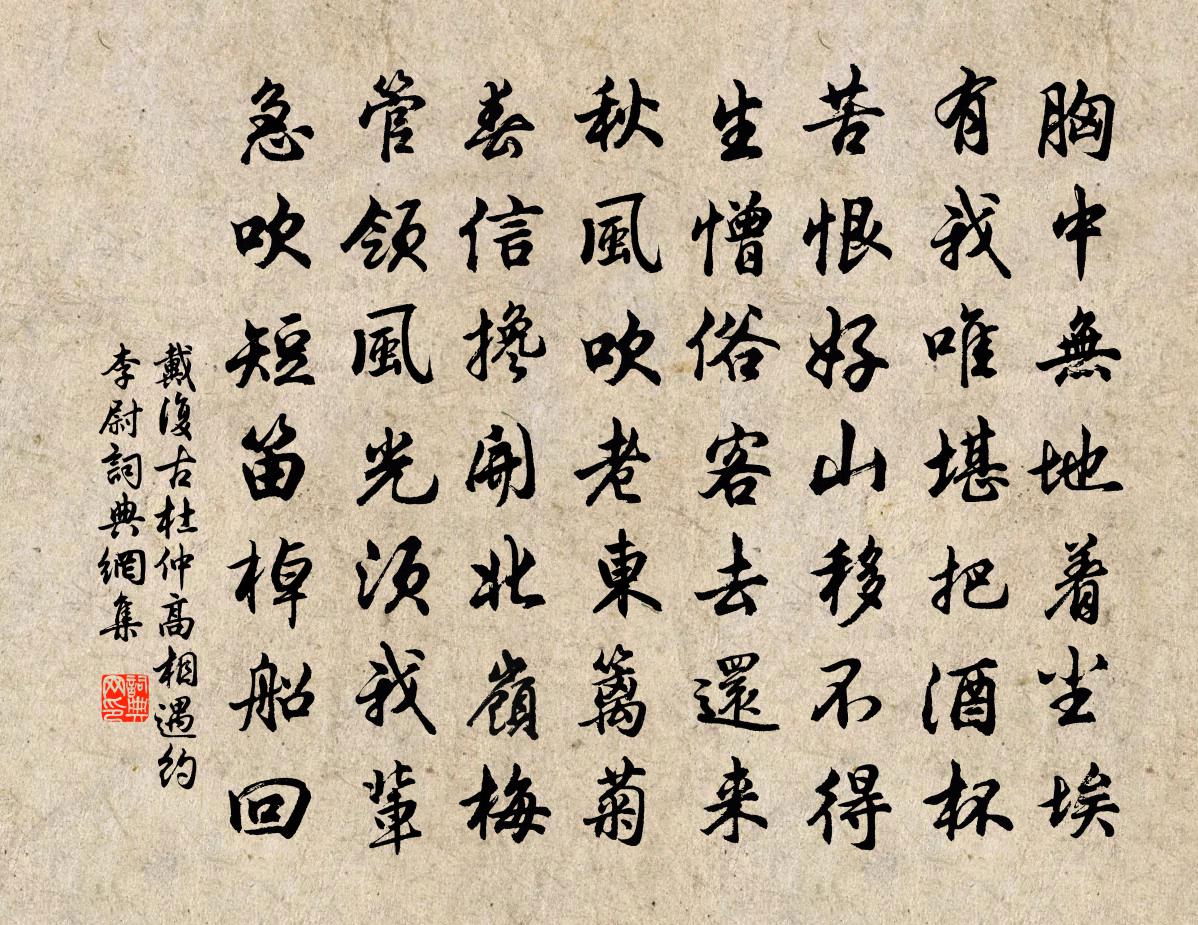 胸中無地着尘埃
有我唯堪把酒杯
苦恨好山移不得
生憎俗客去還来
秋風吹老東篱菊
春信搀開北嶺梅
管領風光須我輩
急吹短笛棹船回
戴復古杜仲高相遇约
李尉詞典網集
詞典网印